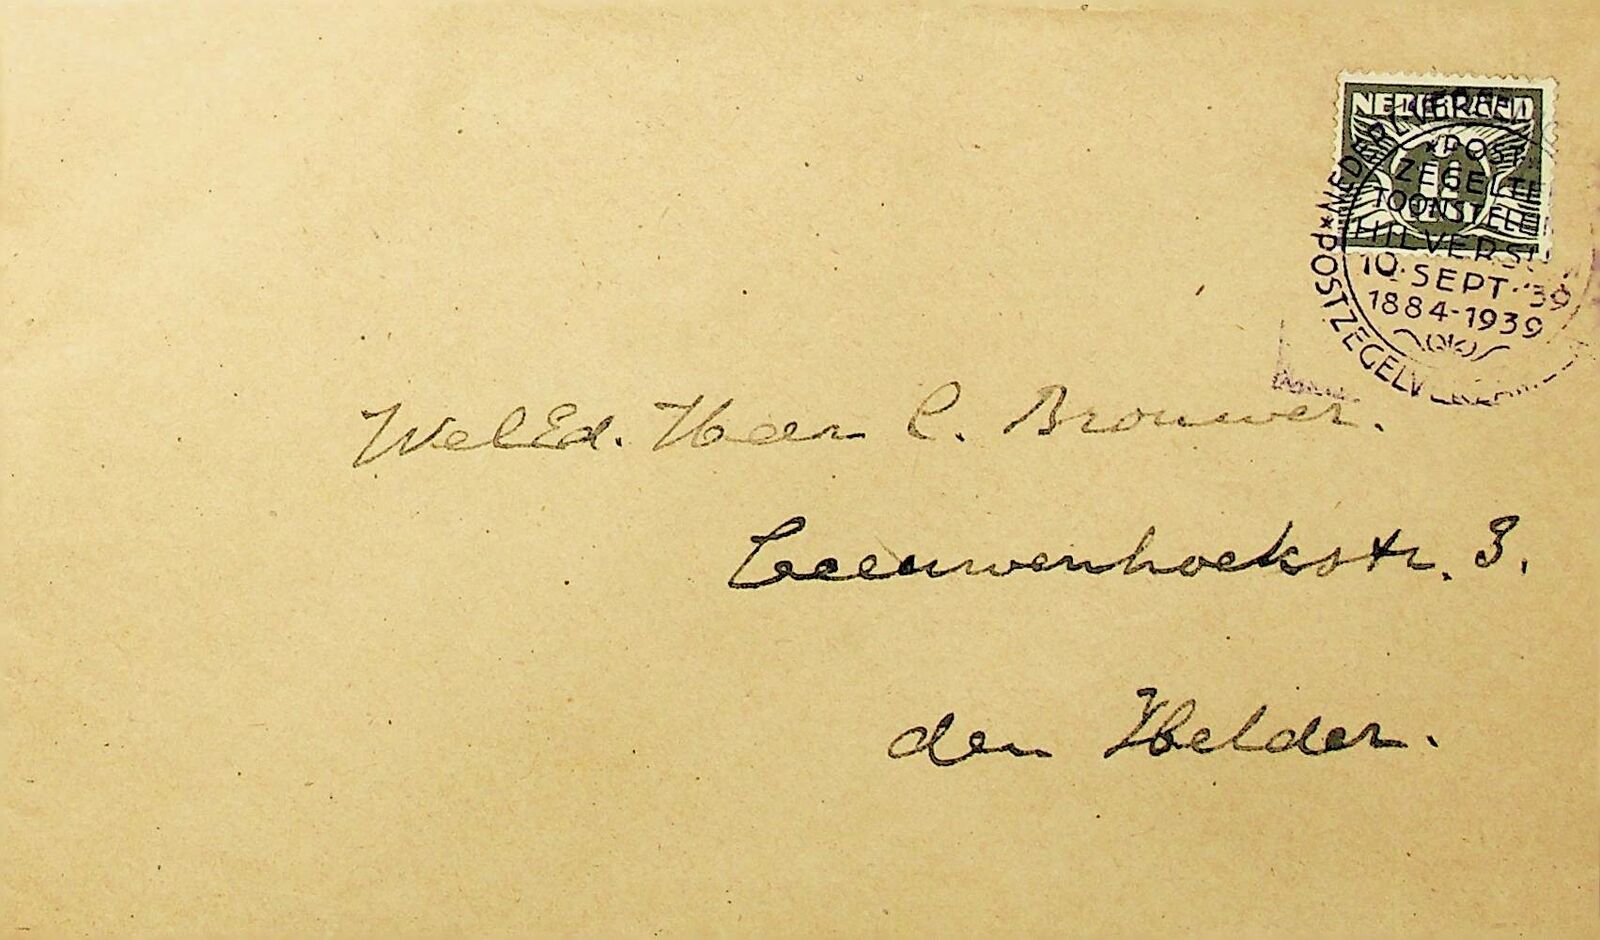 NEDERLAND
CENT
POST
ZEGELTE
TOONSTELL
HILVERSU
10.SEPT.'39
1884-1939
WelEd. Heer C. Brouwer.
Leeuwenhoekstr. 3.
den Helder.